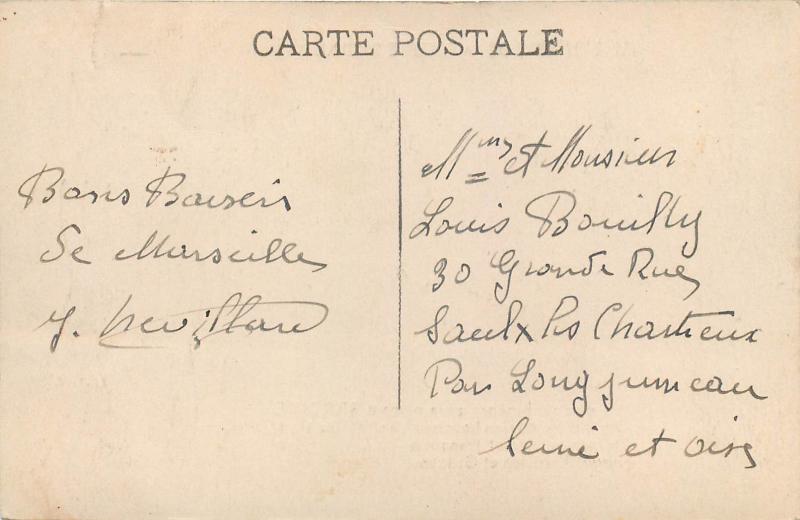 CARTE POSTALE
Bons Baisers
de Marseille
Mme et Monsieur
Louis Bouilly
30 Grande Rue
Saulx les Chartreux
Par Longjumeau
Seine et Oise